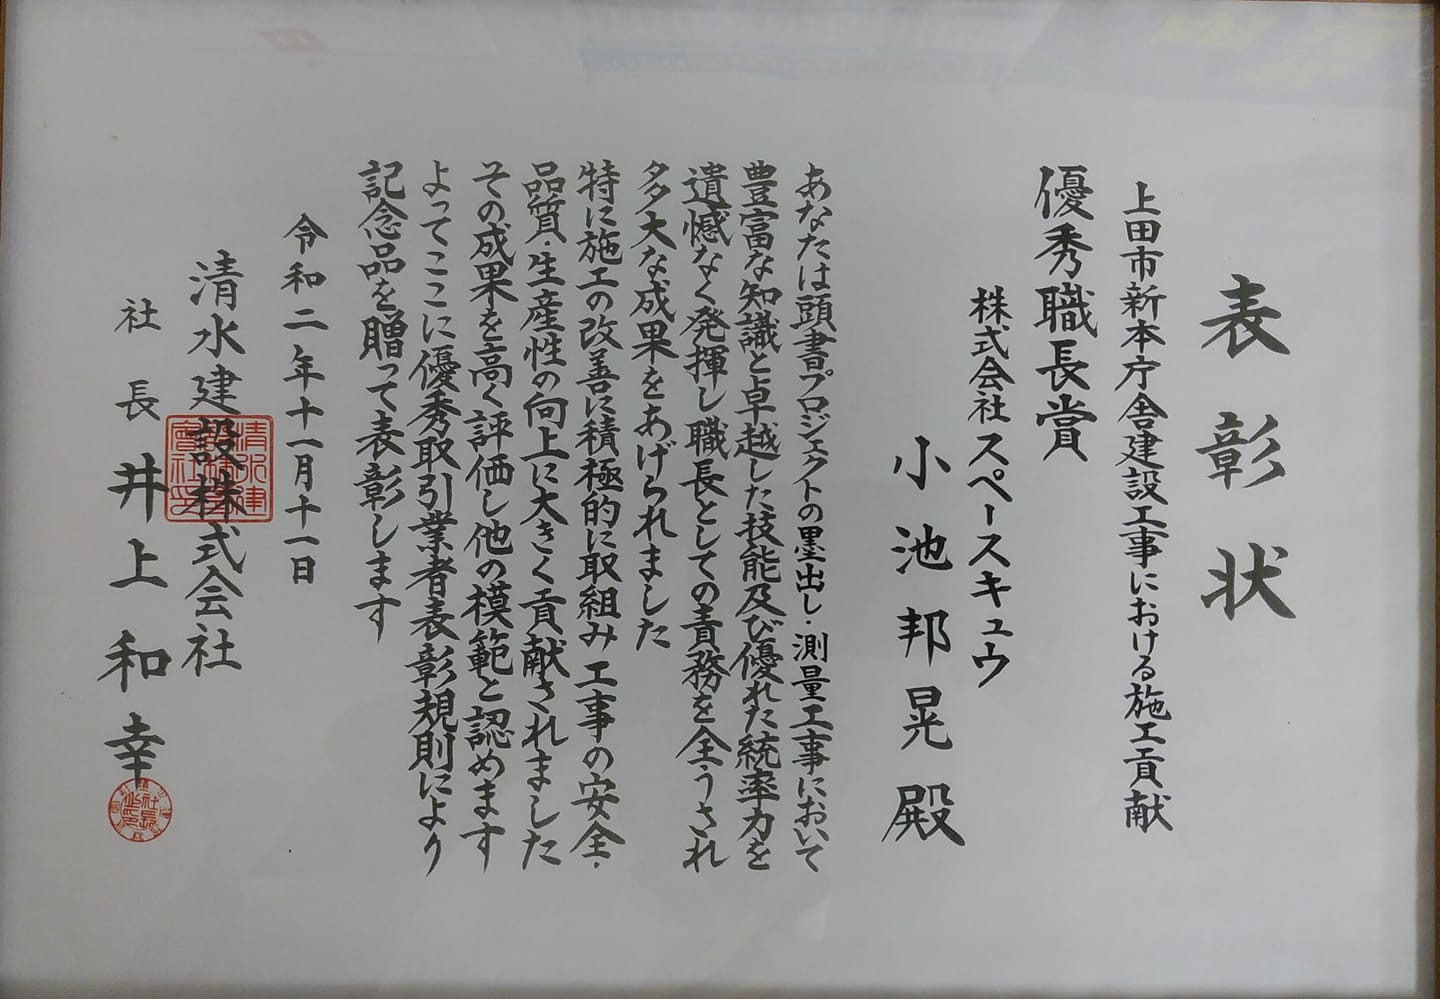 表彰状
上田市新本庁舎建設工事における施工貢献
優秀職長賞
株式会社スペースキュウ
小池邦晃殿
あなたは頭書プロジェクトの墨出し・測量工事において
豊富な知識と卓越した技能及び優れた統率力を
遺憾なく発揮し職長としての責務を全うされ
多大な成果をあげられました
特に施工の改善に積極的に取組み工事の安全・
品質・生産性の向上に大きく貢献されました
その成果を高く評価し他の模範と認めます
よってここに優秀取引業者表彰規則により
記念品を贈って表彰します
令和二年十一月十一日
清水建設株式会社
社長井上和幸